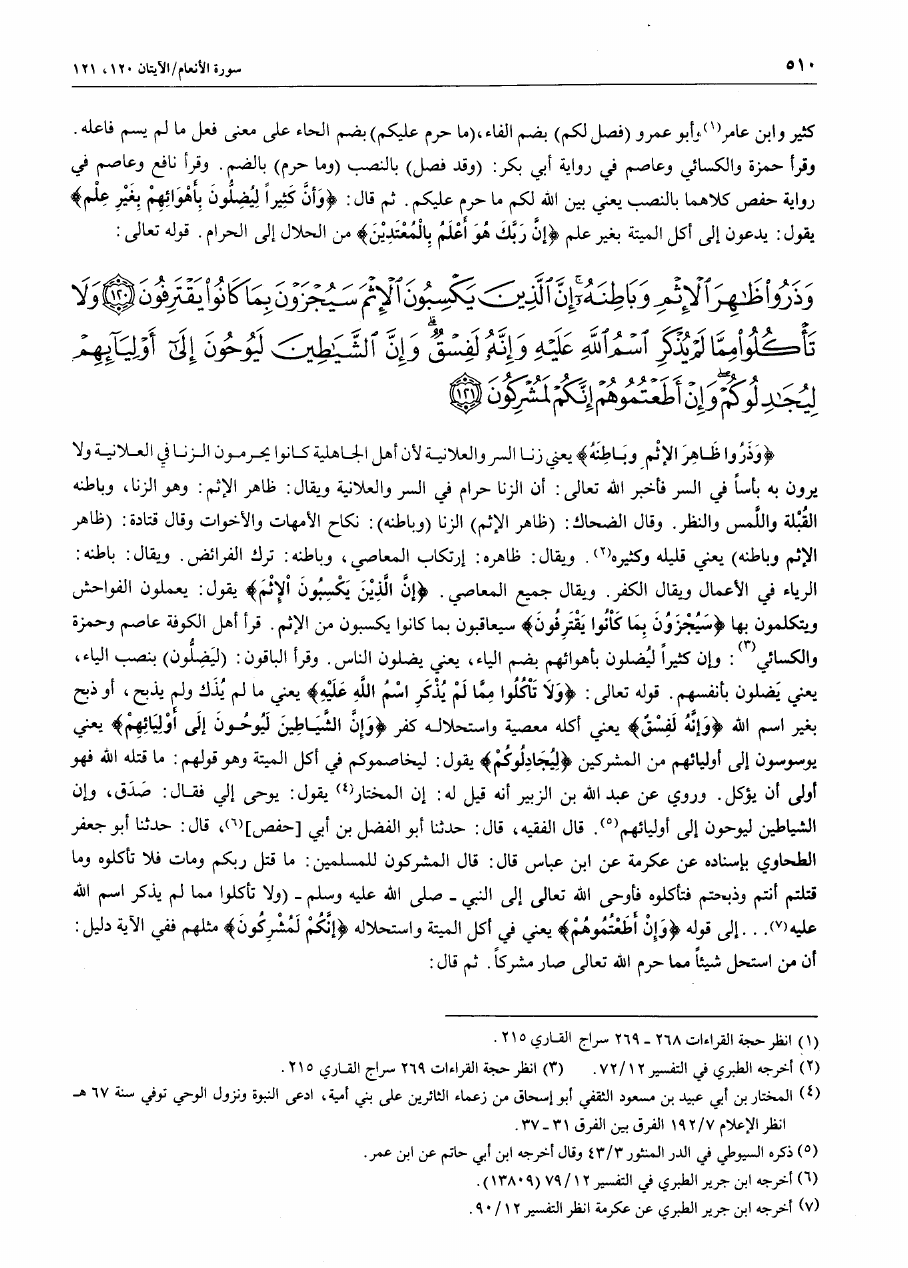 ٥١٠
سورة الأنعام/الآيتان ١٢٠، ١٢١
كثير وابن عامر(١) وأبو عمرو (فصل لكم) بضم الفاء، (ما حرم عليكم) بضم الحاء على معنى فعل ما لم يسم فاعله.
وقرأ حمزة والكسائي وعاصم في رواية أبي بكر: (وقد فصل) بالنصب (وما حرم) بالضم. وقرأ نافع وعاصم في
رواية حفص كلاهما بالنصب يعني بين الله لكم ما حرم عليكم. ثم قال: ﴿وَأَنَّ كَثِيراً لِيُضِلُّونَ بِأَهْوَائِهِمْ بِغَيْرِ عِلْمٍ﴾
يقول: يدعون إلى أكل الميتة بغير علم ﴿إِنَّ رَبَّكَ هُوَ أَعْلَمُ بِالْمُعْتَدِيْنَ﴾ من الحلال إلى الحرام. قوله تعالى:
وَذَرُواْ ظَٰهِرَ ٱلْإِثْمِ وَبَاطِنَهُۥٓ إِنَّ ٱلَّذِينَ يَكْسِبُونَ ٱلْإِثْمَ سَيُجْزَوْنَ بِمَا كَانُواْ يَقْتَرِفُونَ ١٢٠ وَلَا
تَأْكُلُواْ مِمَّا لَمْ يُذْكَرِ ٱسْمُ ٱللَّهِ عَلَيْهِ وَإِنَّهُۥ لَفِسْقٌ وَإِنَّ ٱلشَّيَٰطِينَ لَيُوحُونَ إِلَىٰٓ أَوْلِيَآئِهِمْ
لِيُجَٰدِلُوكُمْ وَإِنْ أَطَعْتُمُوهُمْ إِنَّكُمْ لَمُشْرِكُونَ ١٢١
﴿وَذَرُوا ظَاهِرَ الإِثْمِ وبَاطِنَهُ﴾ يعني زنا السر والعلانية لأن أهل الجاهلية كانوا يحرمون الزنا في العلانية ولا
يرون به بأساً في السر فأخبر الله تعالى: أن الزنا حرام في السر والعلانية ويقال: ظاهر الإثم: وهو الزنا، وباطنه
القُبْلة واللَّمس والنظر. وقال الضحاك: (ظاهر الإثم) الزنا (وباطنه): نكاح الأمهات والأخوات وقال قتادة: (ظاهر
الإثم وباطنه) يعني قليله وكثيره(٢). ويقال: ظاهره: إرتكاب المعاصي، وباطنه: ترك الفرائض. ويقال: باطنه:
الرياء في الأعمال ويقال الكفر. ويقال جميع المعاصي. ﴿إِنَّ الَّذِيْنَ يَكْسِبُونَ الْإِثْمَ﴾ يقول: يعملون الفواحش
ويتكلمون بها ﴿سَيُجْزَوْنَ بِمَا كَانُوا يَقْتَرِفُونَ﴾ سيعاقبون بما كانوا يكسبون من الإثم. قرأ أهل الكوفة عاصم وحمزة
والكسائي(٣): وإن كثيراً ليُضلون بأهوائهم بضم الياء، يعني يضلون الناس. وقرأ الباقون: (ليَضِلُّون) بنصب الياء،
يعني يَضلون بأنفسهم. قوله تعالى: ﴿وَلَا تَأْكُلُوا مِمَّا لَمْ يُذْكَرِ اسْمُ اللَّهِ عَلَيْهِ﴾ يعني ما لم يُذَك ولم يذبح، أو ذبح
بغير اسم الله ﴿وَإِنَّهُ لَفِسْقٌ﴾ يعني أكله معصية واستحلاله كفر ﴿وَإِنَّ الشَّيَاطِينَ لَيُوحُونَ إِلَى أَوْلِيَائِهِمْ﴾ يعني
يوسوسون إلى أوليائهم من المشركين ﴿لِيُجَادِلُوكُمْ﴾ يقول: ليخاصموكم في أكل الميتة وهو قولهم: ما قتله الله فهو
أولى أن يؤكل. وروي عن عبد الله بن الزبير أنه قيل له: إن المختار(٤) يقول: يوحى إلي فقال: صَدَق، وإن
الشياطين ليوحون إلى أوليائهم(٥). قال الفقيه، قال: حدثنا أبو الفضل بن أبي [حفص](٦)، قال: حدثنا أبو جعفر
الطحاوي بإسناده عن عكرمة عن ابن عباس قال: قال المشركون للمسلمين: ما قتل ربكم ومات فلا تأكلوه وما
قتلتم أنتم وذبحتم فتأكلوه فأوحى الله تعالى إلى النبي - صلى الله عليه وسلم - (ولا تأكلوا مما لم يذكر اسم الله
عليه(٧)... إلى قوله ﴿وَإِنْ أَطَعْتُمُوهُمْ﴾ يعني في أكل الميتة واستحلاله ﴿إِنَّكُمْ لَمُشْرِكُونَ﴾ مثلهم ففي الآية دليل:
أن من استحل شيئاً مما حرم الله تعالى صار مشركاً. ثم قال:
(١) انظر حجة القراءات ٢٦٨ - ٢٦٩ سراج القاري ٢١٥.
(٢) أخرجه الطبري في التفسير ٧٢/١٢. (٣) انظر حجة القراءات ٢٦٩ سراج القاري ٢١٥.
(٤) المختار بن أبي عبيد بن مسعود الثقفي أبو إسحاق من زعماء الثائرين على بني أمية، ادعى النبوة ونزول الوحي توفي سنة ٦٧ هـ
انظر الإعلام ١٩٢/٧ الفرق بين الفرق ٣١ - ٣٧.
(٥) ذكره السيوطي في الدر المنثور ٤٣/٣ وقال أخرجه ابن أبي حاتم عن ابن عمر.
(٦) أخرجه ابن جرير الطبري في التفسير ٧٩/١٢ (١٣٨٠٩).
(٧) أخرجه ابن جرير الطبري عن عكرمة انظر التفسير ٩٠/١٢.